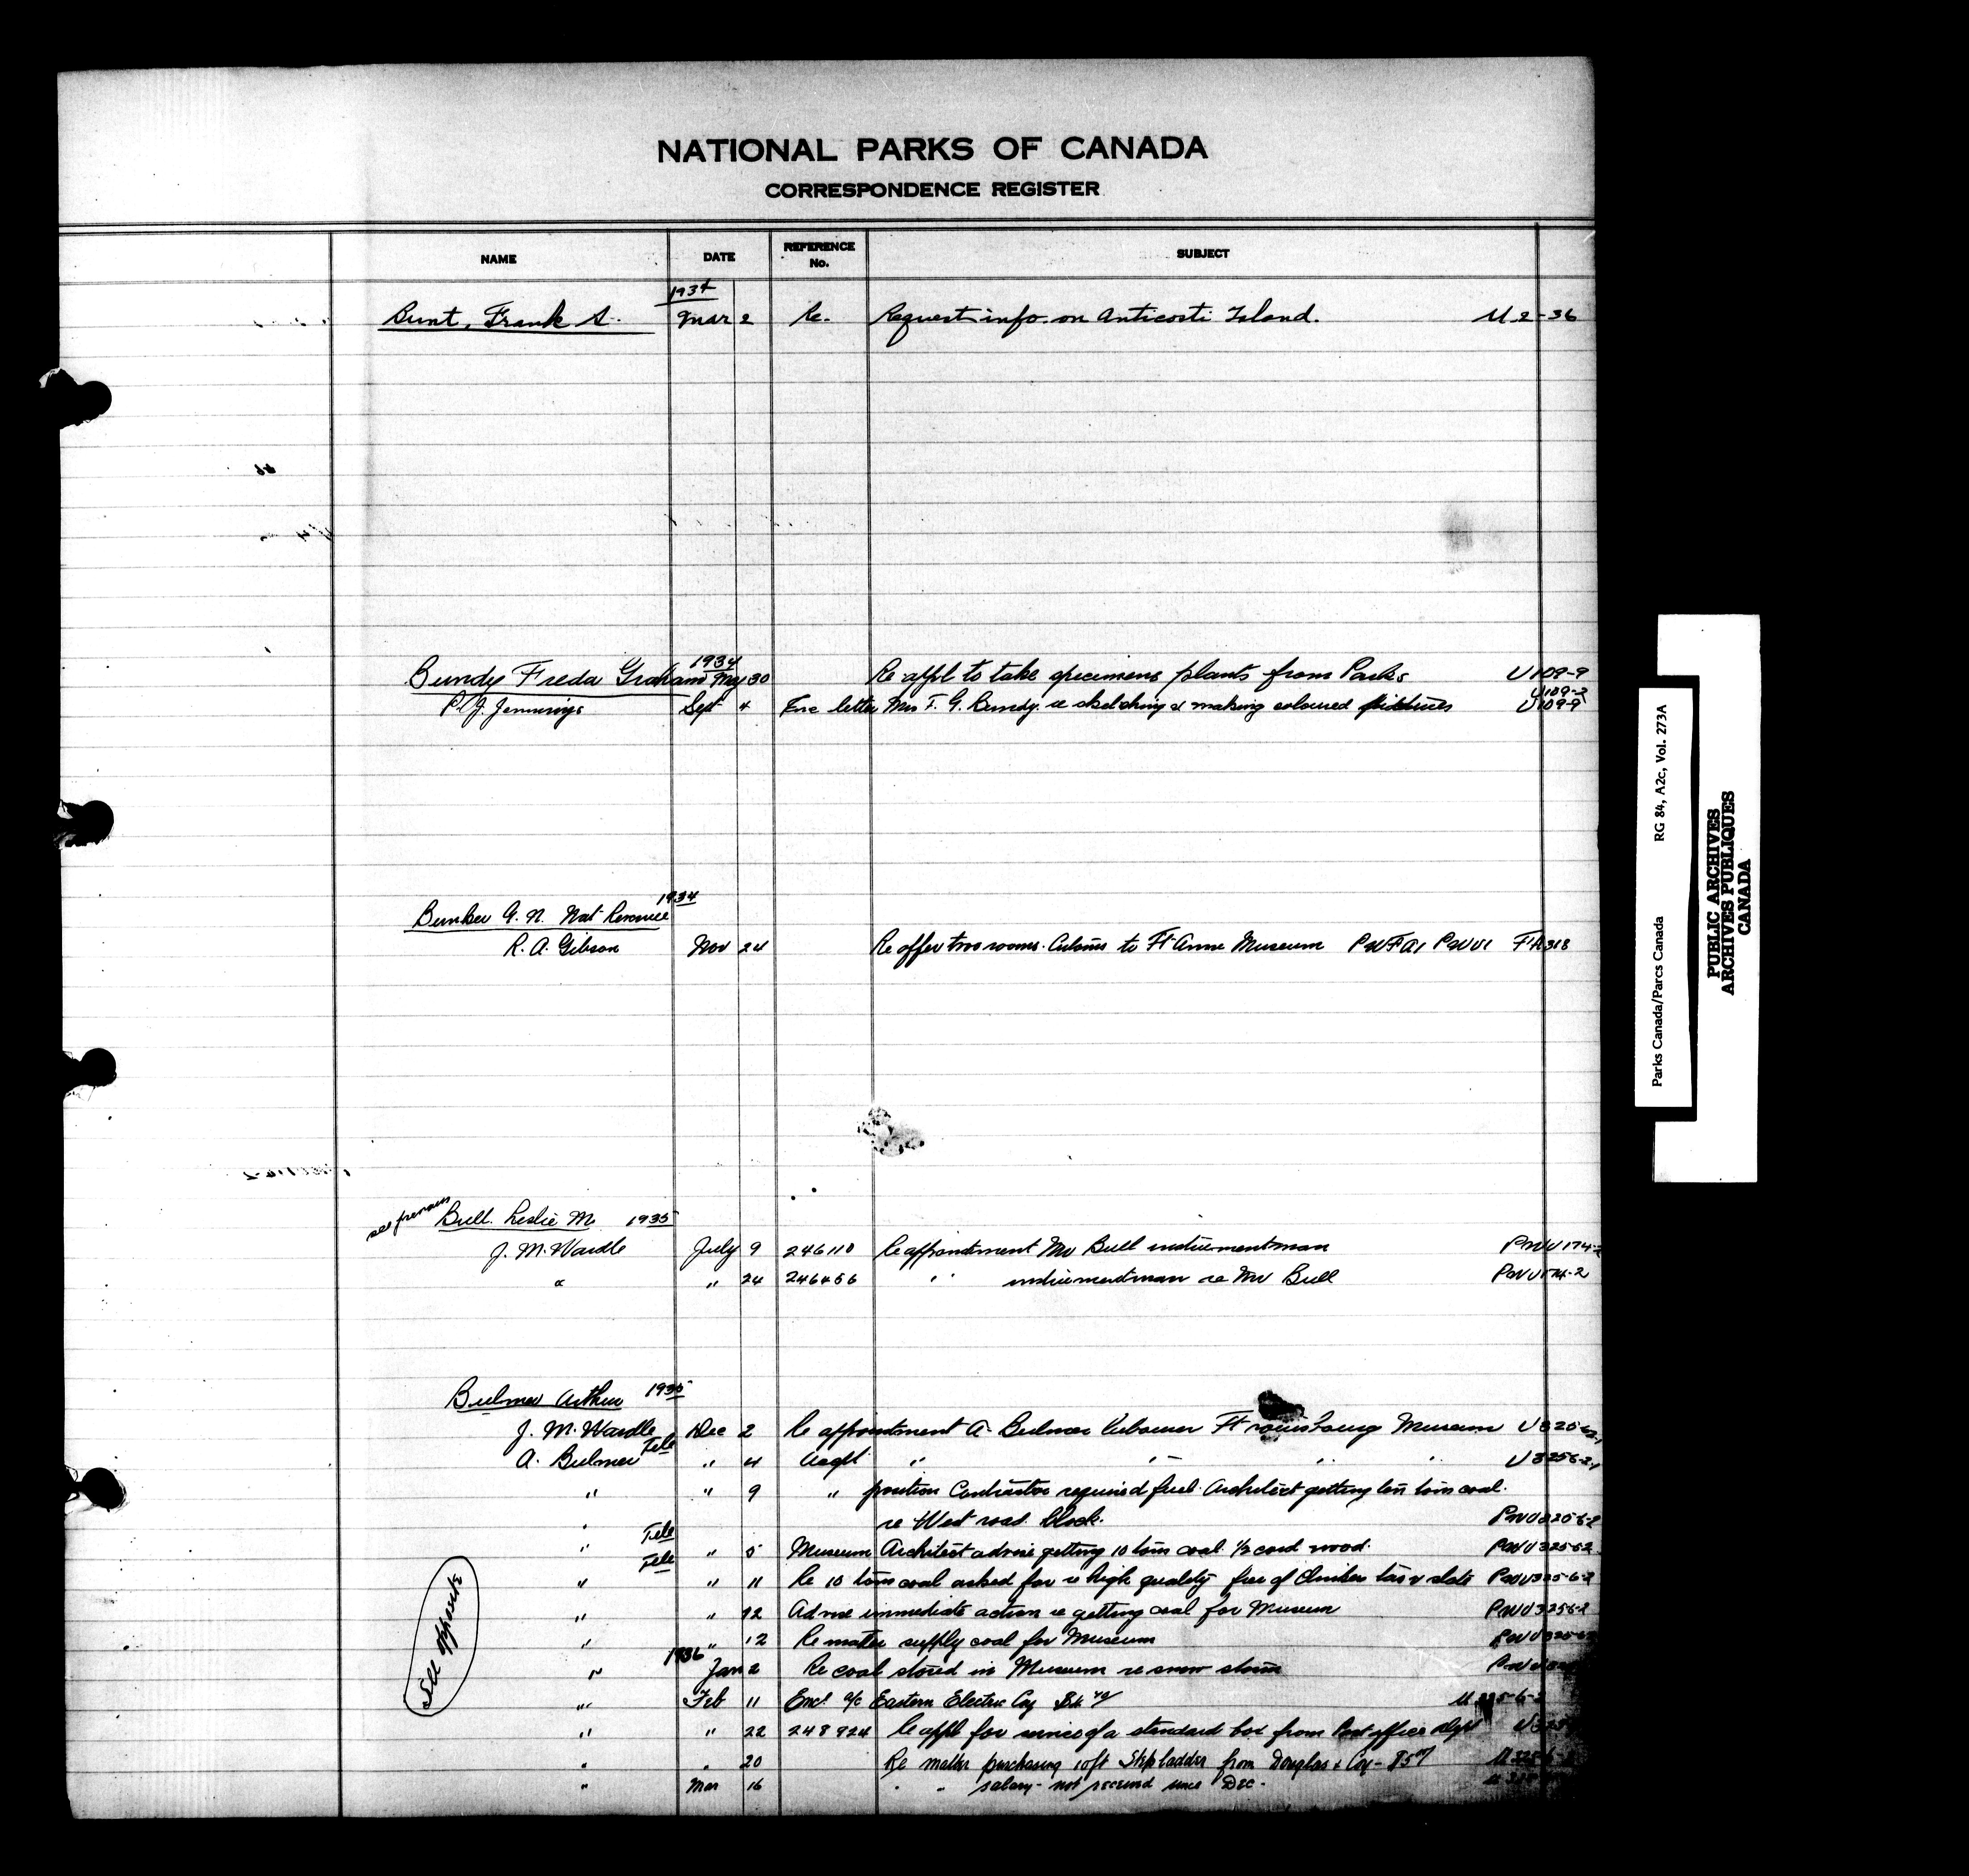 NATIONAL PARKS OF CANADA
CORRESPONDENCE REGISTER
NAME DATE REFERENCE No. SUBJECT
1934
Bunt, Frank S. Mar 2 Re. Request info. on Anticosti Island. U 2-36
1934
Bundy Freda Graham May 30 Re appl to take specimens plants from Parks U109-9
U109-2
P. J. Jennings Sept 4 Enc letter Mrs F. G. Bundy. re sketching & making coloured U109-9
1934
Bunker G. N. Nat Revenue
R. A. Gibson Nov 24 Re offer two rooms. Customs to Ft Anne Museum PWFA1 PWU1 FA318
see previous Bull. Leslie M. 1935
J. M. Wardle July 9 246110 Re appointment Mr Bull instrumentman PWU174-2
" " 24 246456 " instrumentman re Mr Bull PWU174-2
Bulmer Arthur 1935
J. M. Wardle Dec 2 Re appointment A. Bulmer Ft Museum
A. Bulmer Tele " 4 Accpt " " " " U325-6-2-1
" " 9 " position Contractor required fuel. Architect getting ten tons coal.
re West road block.
" Tele " 5 Museum Architect advise getting 10 tons coal. 1/2 cord wood.
" Tele " 11 Re 10 tons coal asked for re high quality free of Clinkers & slate PWU325-6-2
" " 12 Advise immediate action re getting coal for Museum PWU325-6-2
" " 12 Re matter supply coal for Museum
1936
" Jan 2 Re coal stored in Museum re snow storm
" Feb 11 Encl a/c Eastern Electric Coy
" " 22 248924 Re appl for service of a standard box from Post office Dept
" " 20 Re matter purchasing 10 ft Step ladder from Douglas & Coy -
" Mar 16 " " salary - not received since Dec -
See opposite
Parks Canada/Parcs Canada RG 84, A2c, Vol. 273A
PUBLIC ARCHIVES
ARCHIVES PUBLIQUES
CANADA